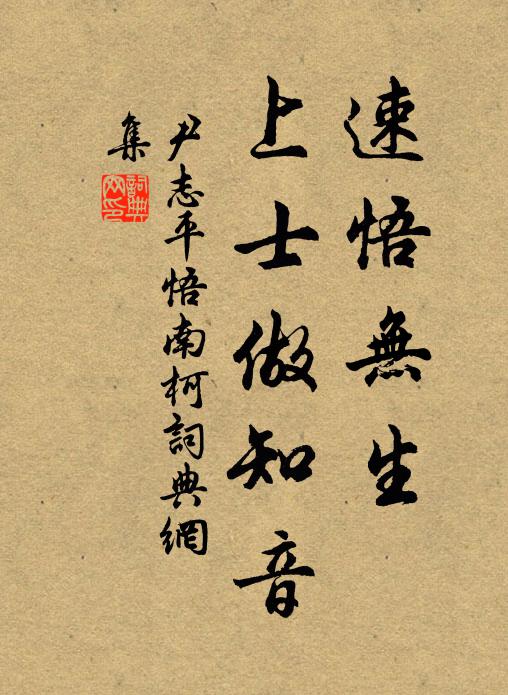 速悟無生
上士做知音
尹志平悟南柯詞典網
集
詞典網印